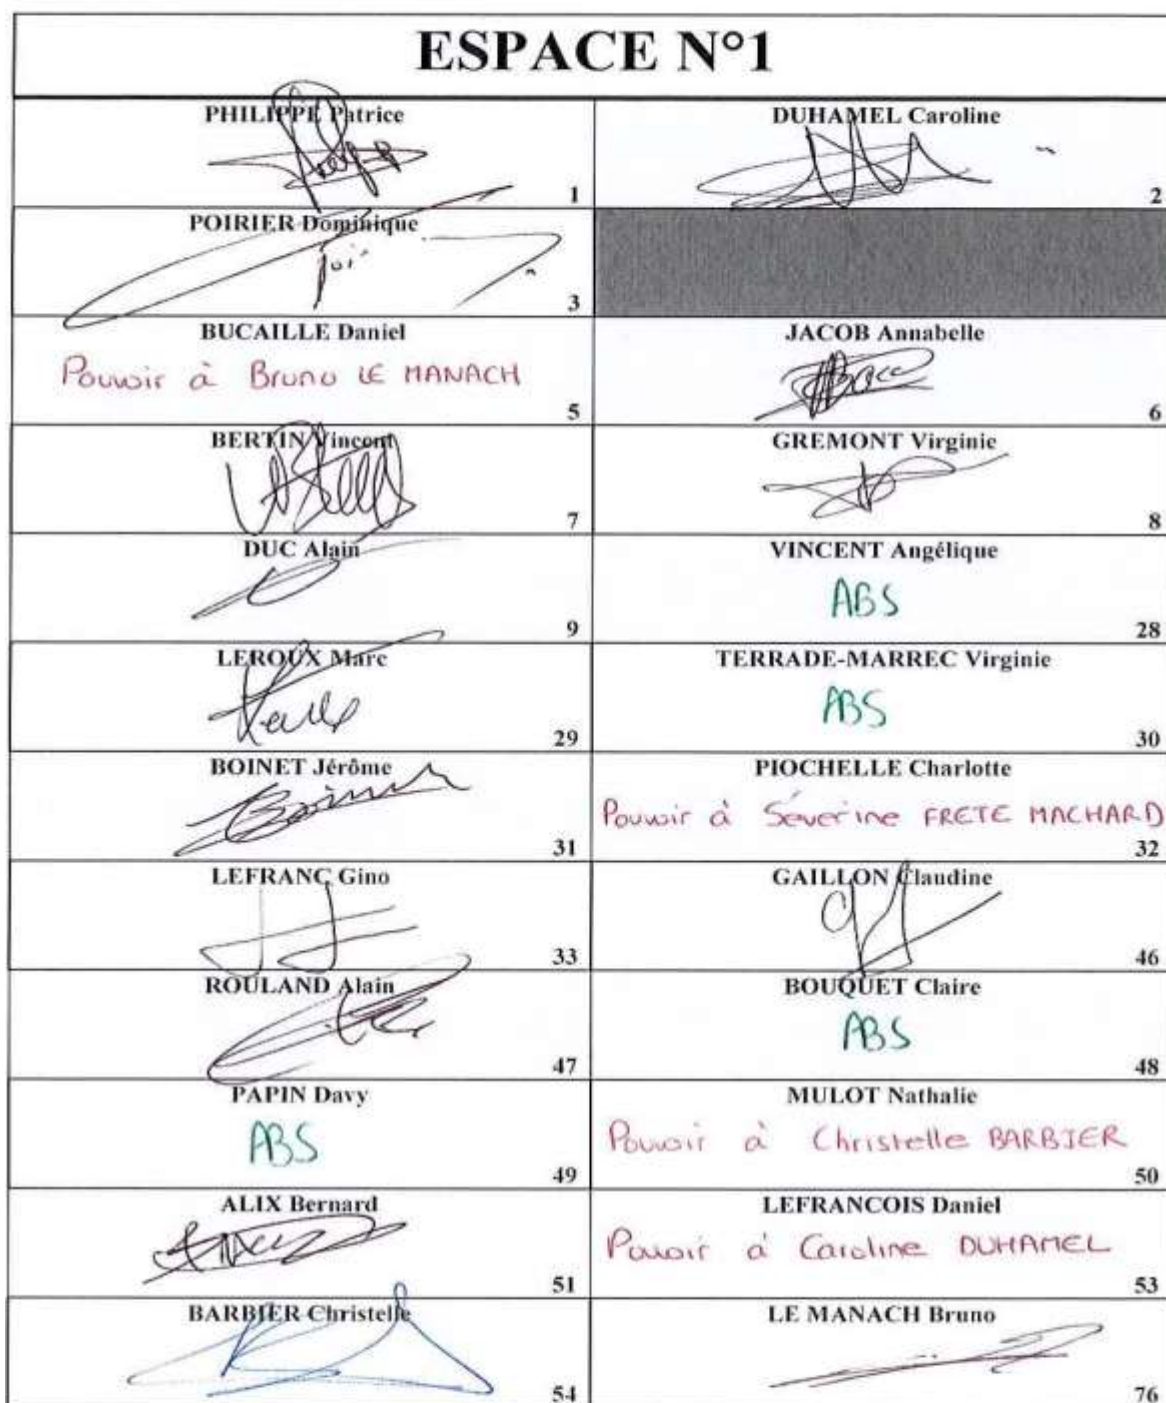 ESPACE N°1
PHILIPPE Patrice
1
DUHAMEL Caroline
2
POIRIER Dominique
3
BUCAILLE Daniel
Pouvoir à Bruno LE MANACH
5
JACOB Annabelle
6
BERTIN Vincent
7
GREMONT Virginie
8
DUC Alain
9
VINCENT Angélique
ABS
28
LEROUX Marc
29
TERRADE-MARREC Virginie
ABS
30
BOINET Jérôme
31
PIOCHELLE Charlotte
Pouvoir à Séverine FRETE MACHARD
32
LEFRANC Gino
33
GAILLON Claudine
46
ROULAND Alain
47
BOUQUET Claire
ABS
48
PAPIN Davy
ABS
49
MULOT Nathalie
Pouvoir à Christelle BARBIER
50
ALIX Bernard
51
LEFRANCOIS Daniel
Pouvoir à Caroline DUHAMEL
53
BARBIER Christelle
54
LE MANACH Bruno
76